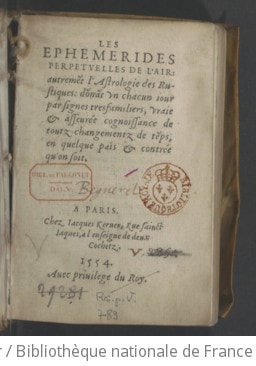 LES
EPHEMERIDES
PERPETVELLES DE L'AIR:
autremēt l'Astrologie des Ru-
stiques: dōnāt vn chacun iour
par signes tresfamiliers, vraie
& asseurée cognoissance de
touts changemens de tēps,
en quelque païs & contrée
qu'on soit.
DILL. DE FALCONET.
DON.
A PARIS,
Chez Iaques Kerver, rue sainct
Iaques, a l'enseigne de deux
Cochetz.
V.
1554.
Auec priuilege du Roy.
Rés. p. V.
789
r / Bibliothèque nationale de France